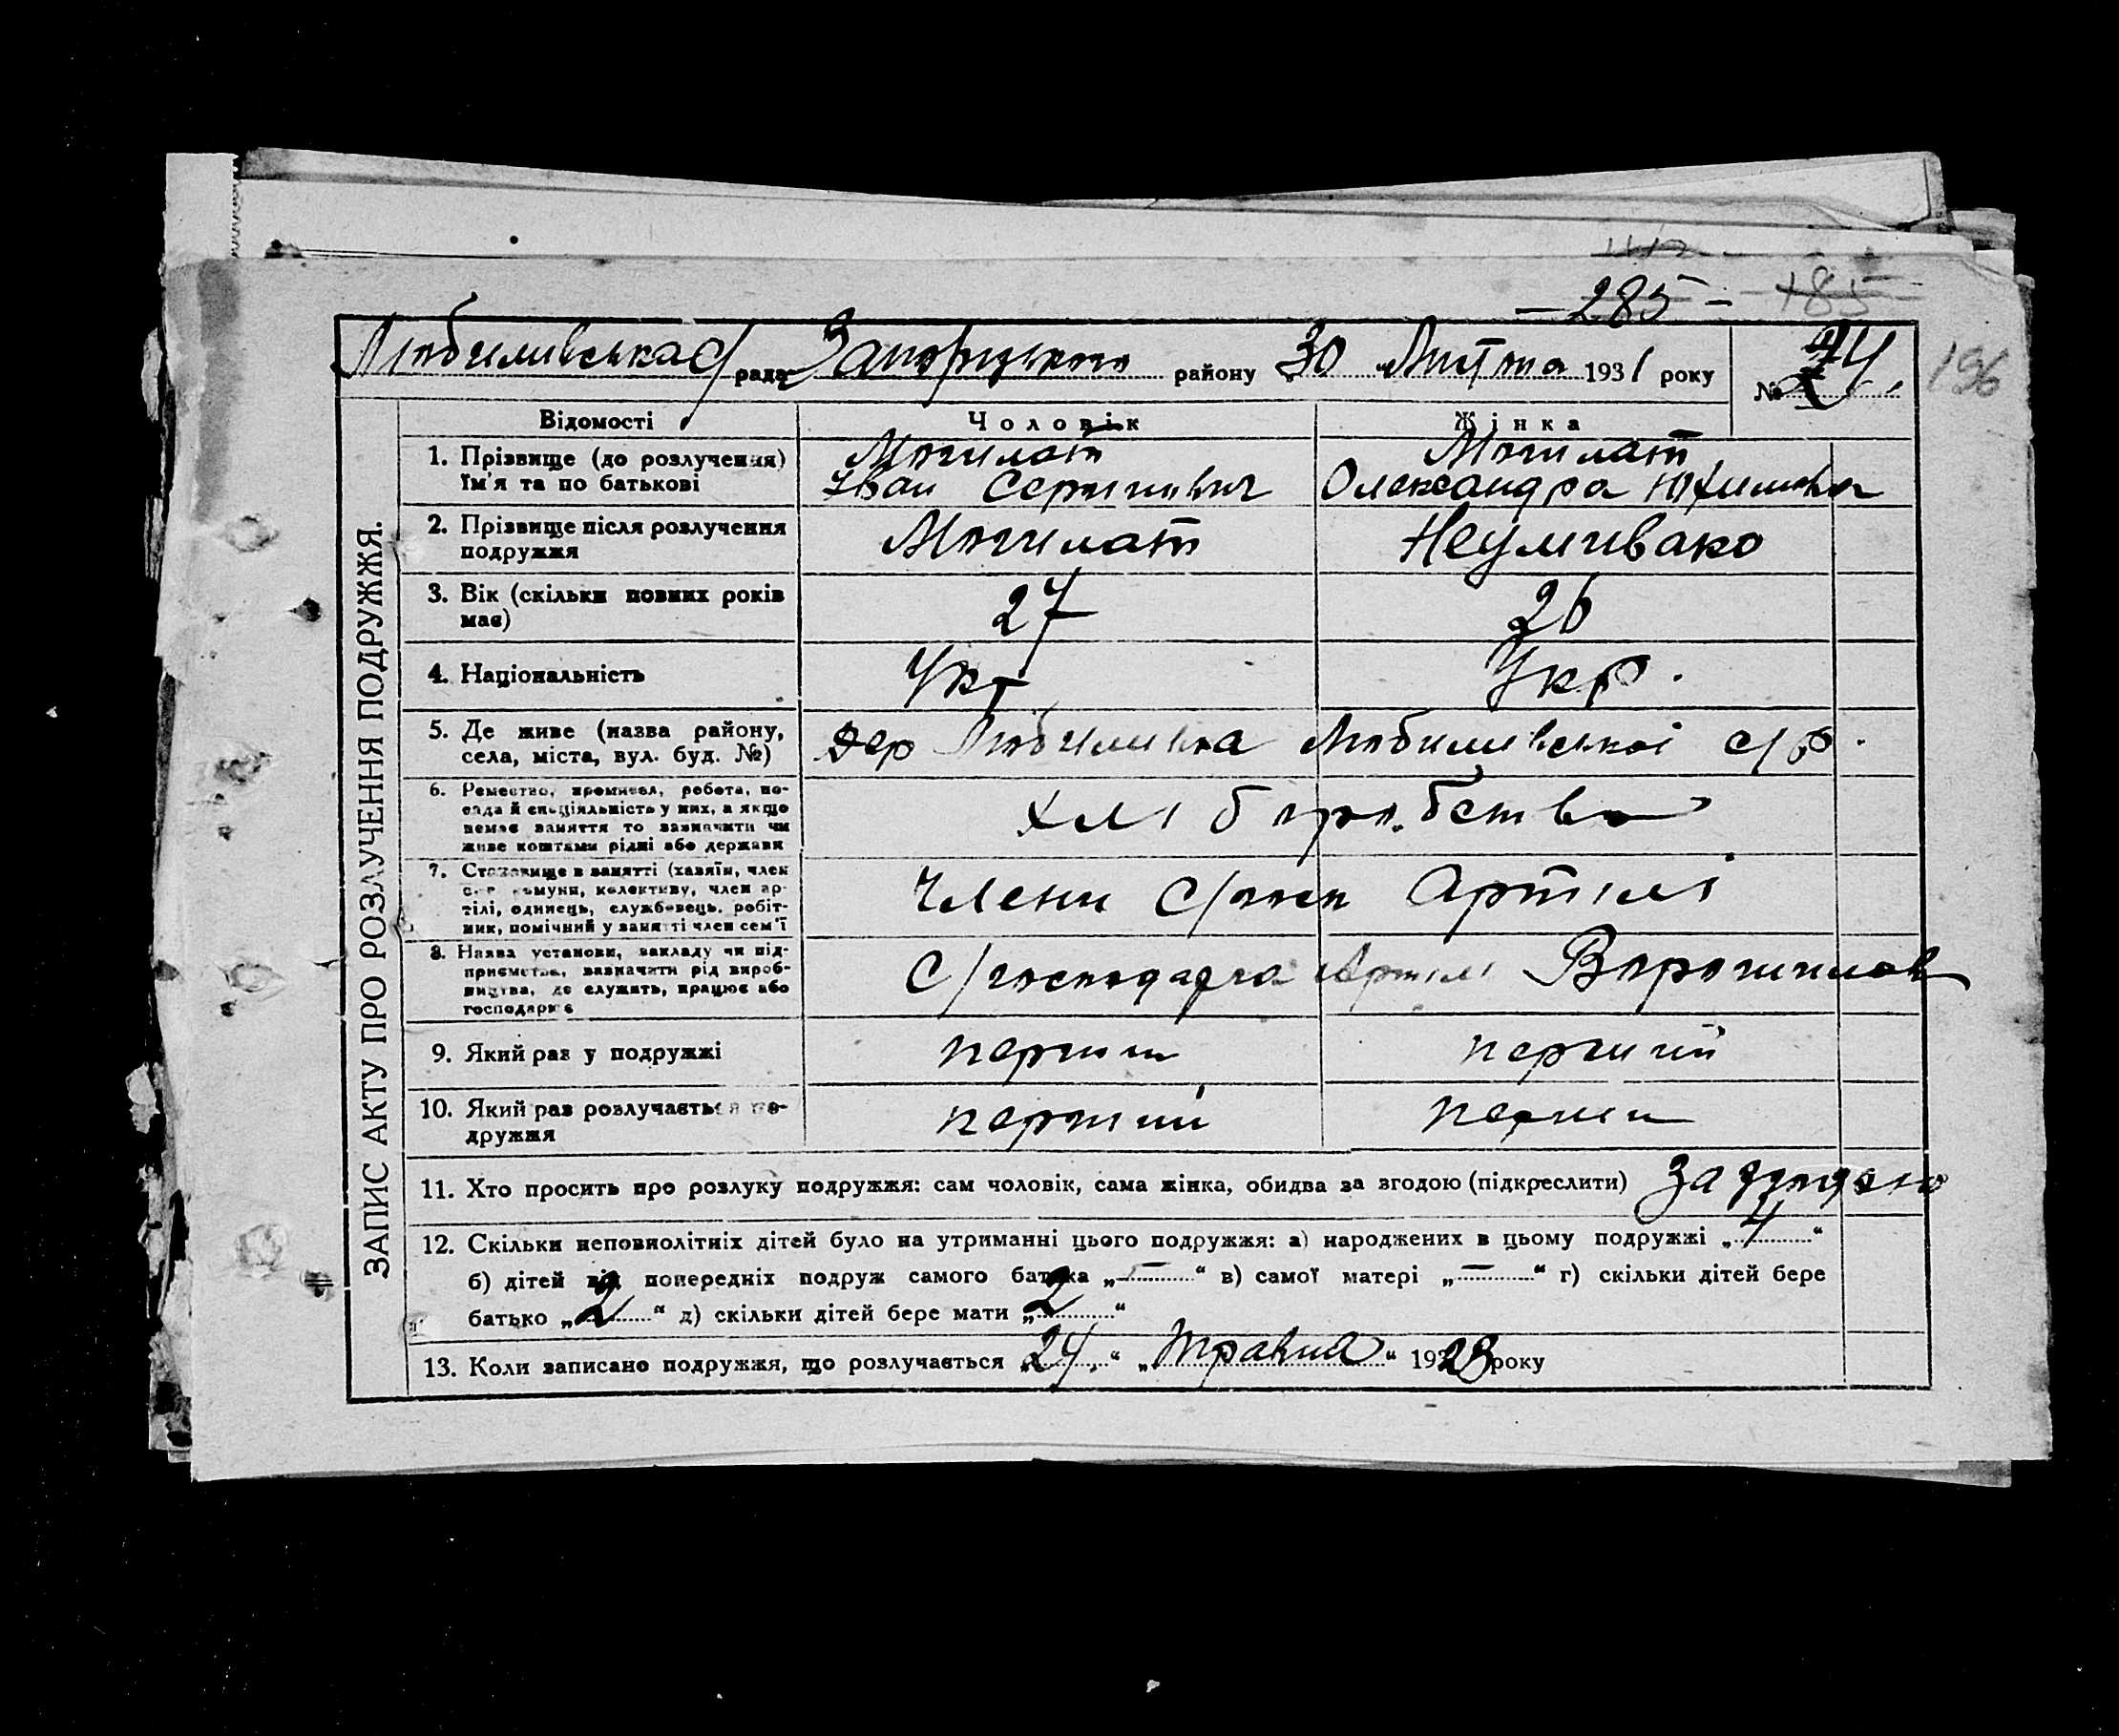 — 285 —
185
Любимівська С/ рада Запоріжського району „30 " Листопа 1931 року
№ 24.
196
ЗАПИС АКТУ ПРО РОЗЛУЧЕННЯ ПОДРУЖЖЯ.
Відомості Чоловік Жінка
1. Прізвище (до розлучення) Могилат Могилат
їм'я та по батькові Іван Сергийович Олександра Юхимовна
2. Прізвище після розлучення Могилат Неумивако
подружжя
3. Вік (скільки повних років 27 26
має)
4. Національність Укр Укр.
5. Де живе (назва району, Дер Любимивка Любимивської с/р.
села, міста, вул. буд. №)
6. Ремество, промисел, робота, по-
сада й спеціяльність у них, а якщо хліборобство
немає заняття то зазначити чи
живе коштами рідні або держави
7. Становище в занятті (хазяїн, член
с.-г. комуни, колективу, член ар- Члени С/госп Артілі
тілі, одинець, службовець, робіт-
ник, помічний у занятті член сем'ї
8. Назва установи, закладу чи під-
приємства, зазначити рід вироб- С/господарча Артіль Ворошилов
ництва, де служить, працює або
господарює
9. Який раз у подружжі перший перший
10. Який раз розлучається по- перший перший
дружжя
11. Хто просить про розлуку подружжя: сам чоловік, сама жінка, обидва за згодою (підкреслити) За згодою
12. Скільки неповнолітніх дітей було на утриманні цього подружжя: а) народжених в цьому подружжі „4"
б) дітей від попередніх подруж самого батька „—" в) самої матері „—" г) скільки дітей бере
батько „2" д) скільки дітей бере мати „2"
13. Коли записано подружжя, що розлучається „24." „Травня" 1923 року